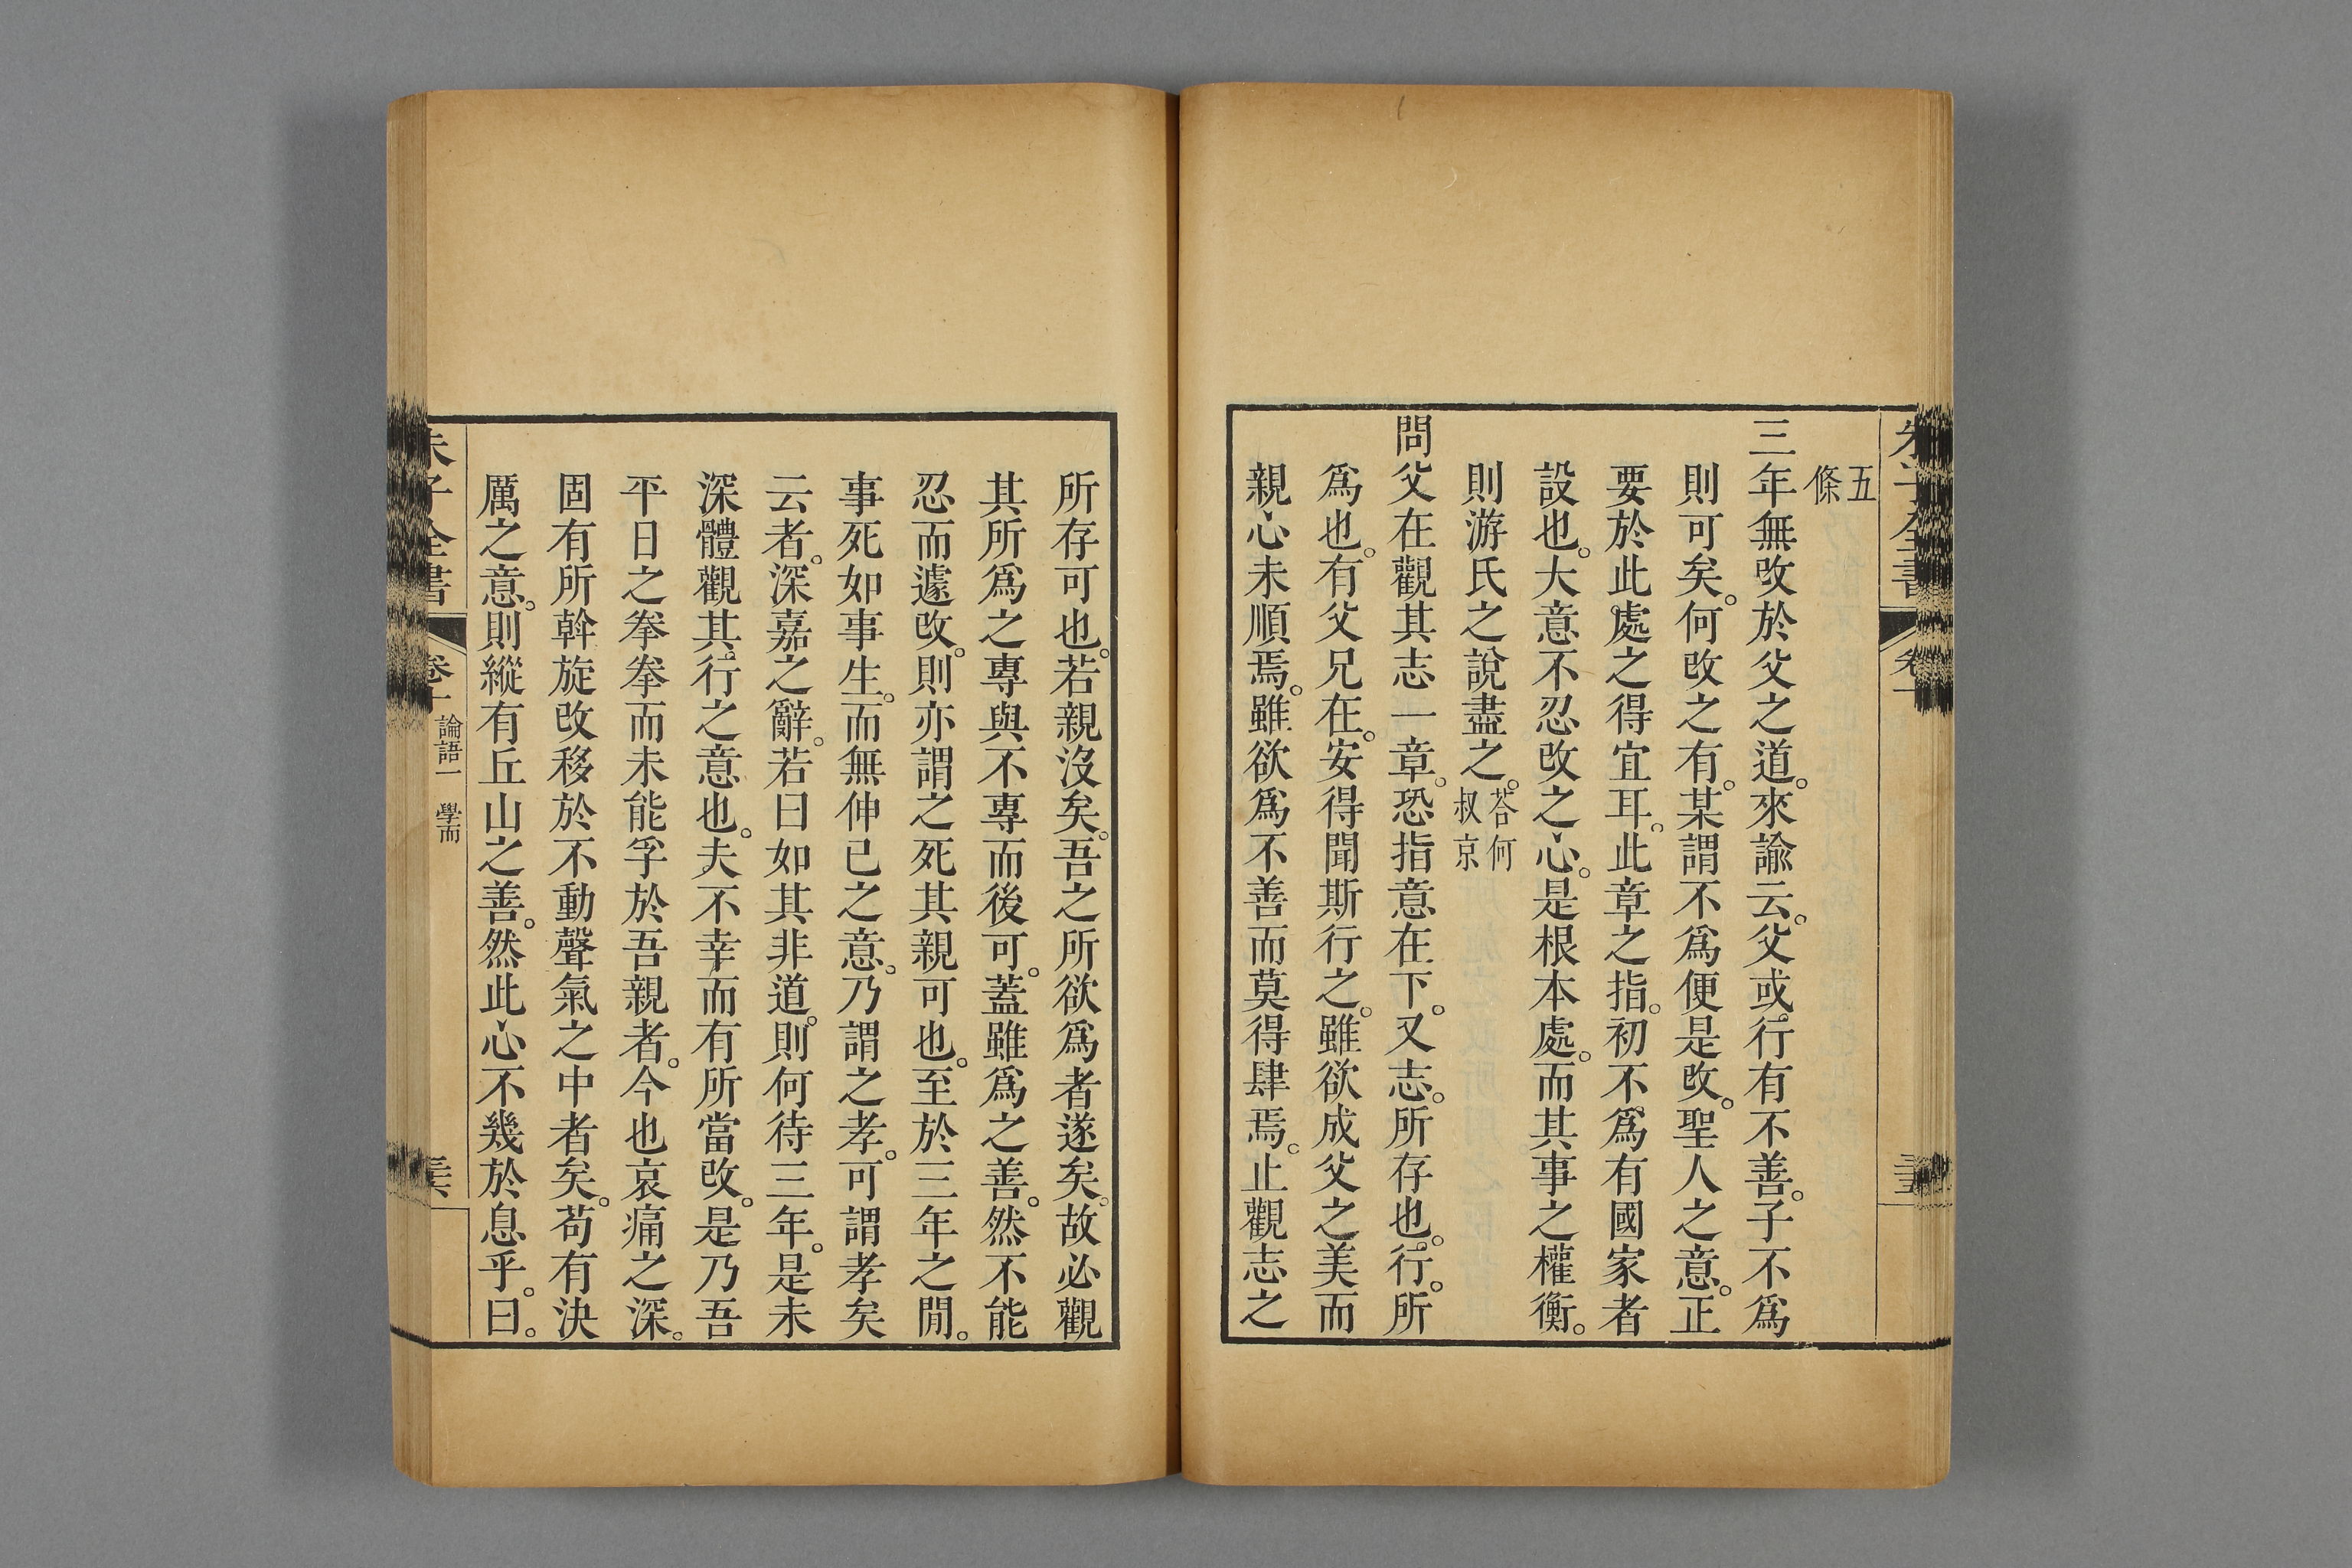 五條
三年無改於父之道。來諭云。父或行有不善。子不爲
則可矣。何改之有。某謂不爲便是改。聖人之意。正
要於此處之得宜耳。此章之指。初不爲有國家者
設也。大意不忍改之心。是根本處。而其事之權衡。
則游氏之說盡之。荅何叔京
問父在觀其志一章。恐指意在下。又志。所存也。行。所
爲也。有父兄在。安得聞斯行之。雖欲成父之美而
親心未順焉。雖欲爲不善而莫得肆焉。止觀志之
所存可也。若親沒矣。吾之所欲爲者遂矣。故必觀
其所爲之專與不專而後可。蓋雖爲之善。然不能
忍而遽改。則亦謂之死其親可也。至於三年之閒。
事死如事生。而無伸己之意。乃謂之孝。可謂孝矣
云者。深嘉之辭。若曰如其非道。則何待三年。是未
深體觀其行之意也。夫不幸而有所當改。是乃吾
平日之拳拳而未能孚於吾親者。今也哀痛之深。
固有所斡旋改移於不動聲氣之中者矣。苟有決
厲之意。則縱有丘山之善。然此心不幾於息乎。曰。
朱子全書 卷十 論語一 學而